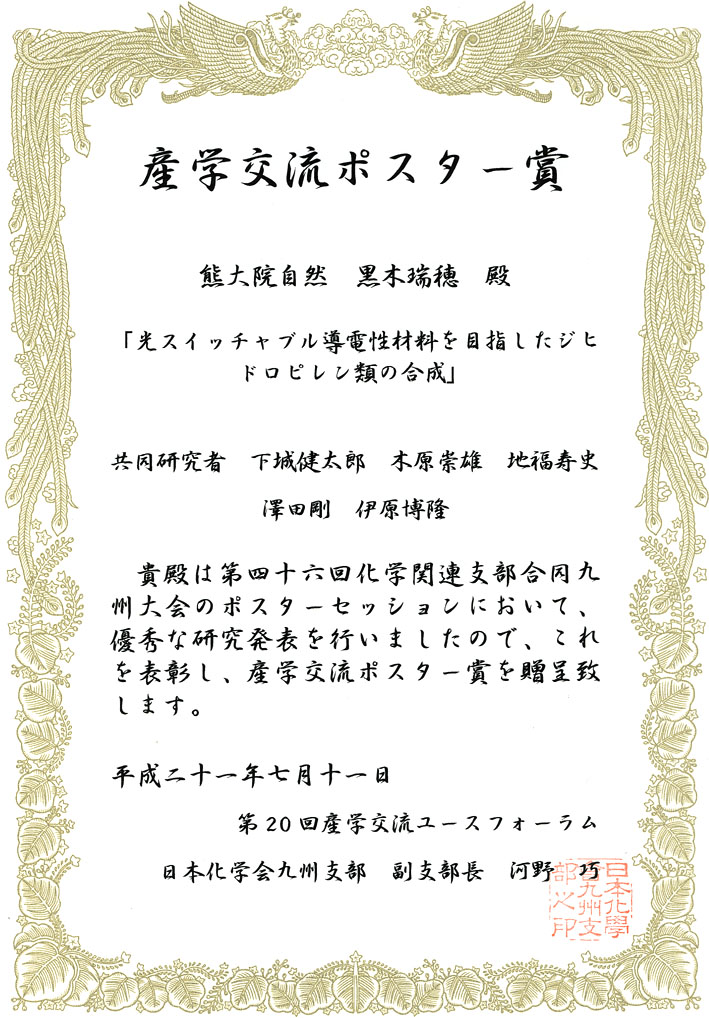 産学交流ポスター賞
熊大院自然　黒木瑞穂　殿
「光スイッチャブル導電性材料を目指したジヒ
ドロピレン類の合成」
共同研究者　下城健太郎　木原崇雄　地福寿史
澤田剛　伊原博隆
貴殿は第四十六回化学関連支部合同九
州大会のポスターセッションにおいて、
優秀な研究発表を行いましたので、これ
を表彰し、産学交流ポスター賞を贈呈致
します。
平成二十一年七月十一日
第20回産学交流ユースフォーラム
日本化学会九州支部　副支部長　河野　巧
日本化學
會九州支
部之印